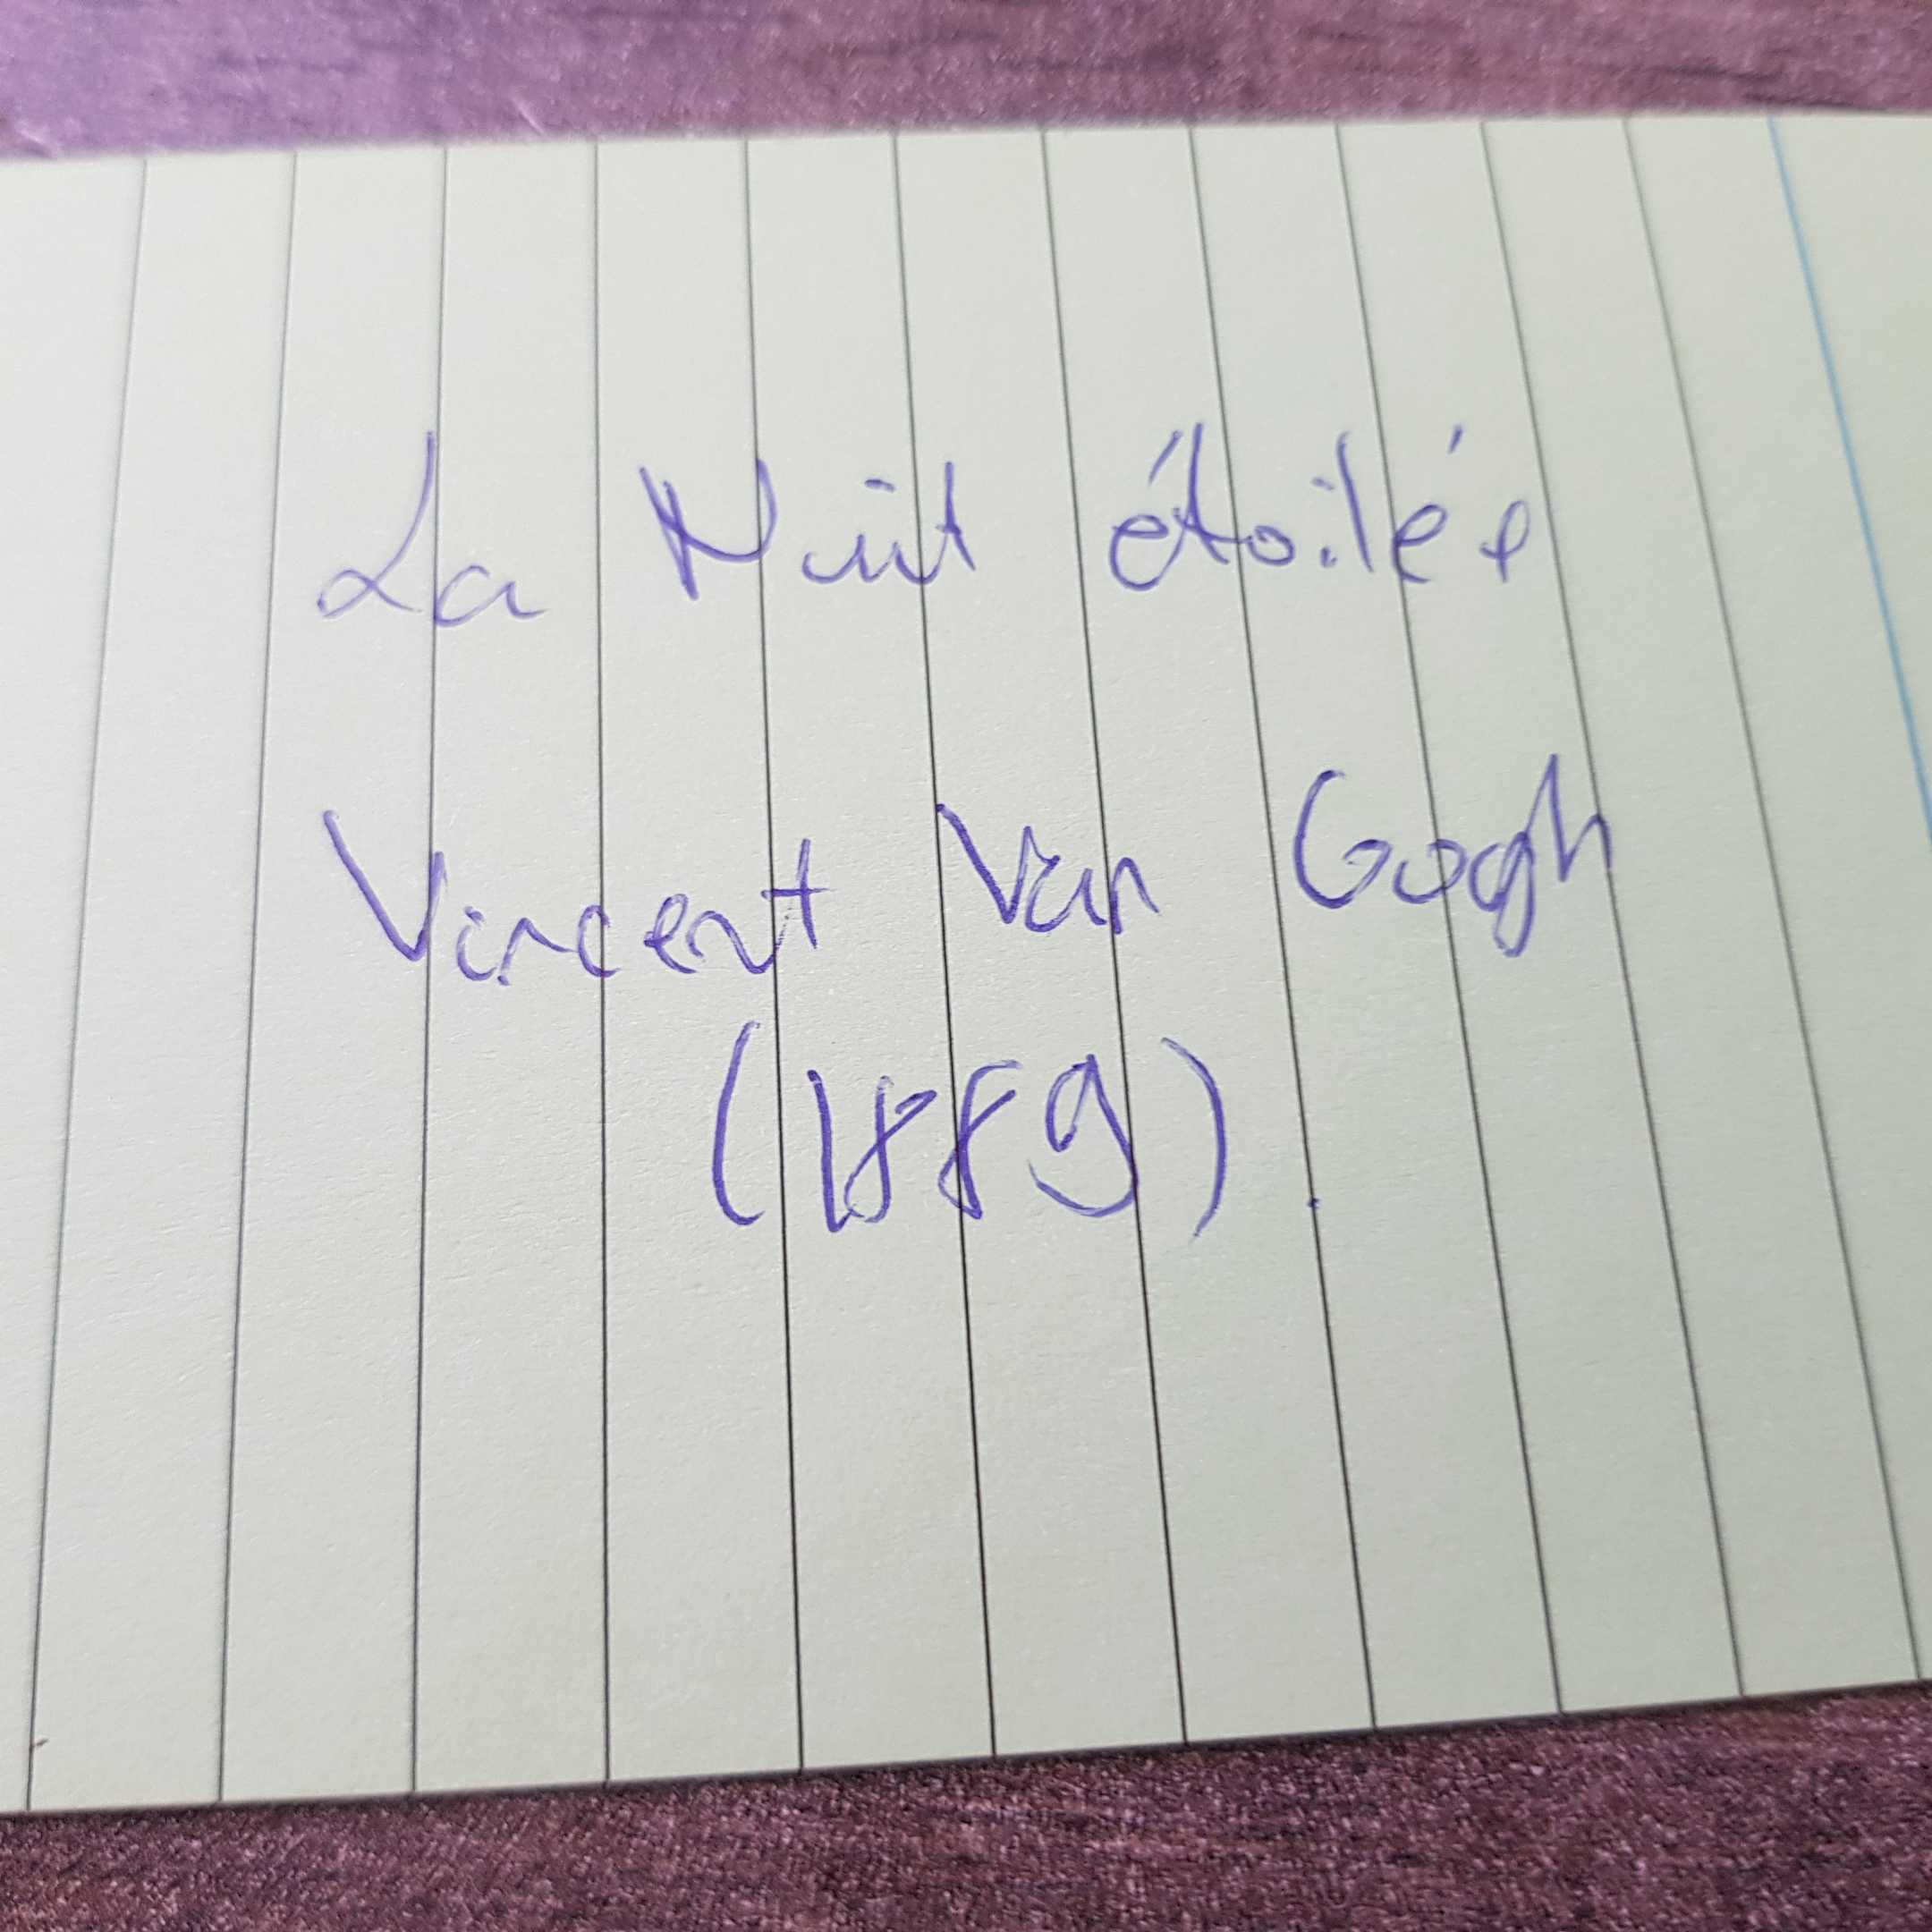 La Nuit étoilée
Vincent Van Gogh
(1889).